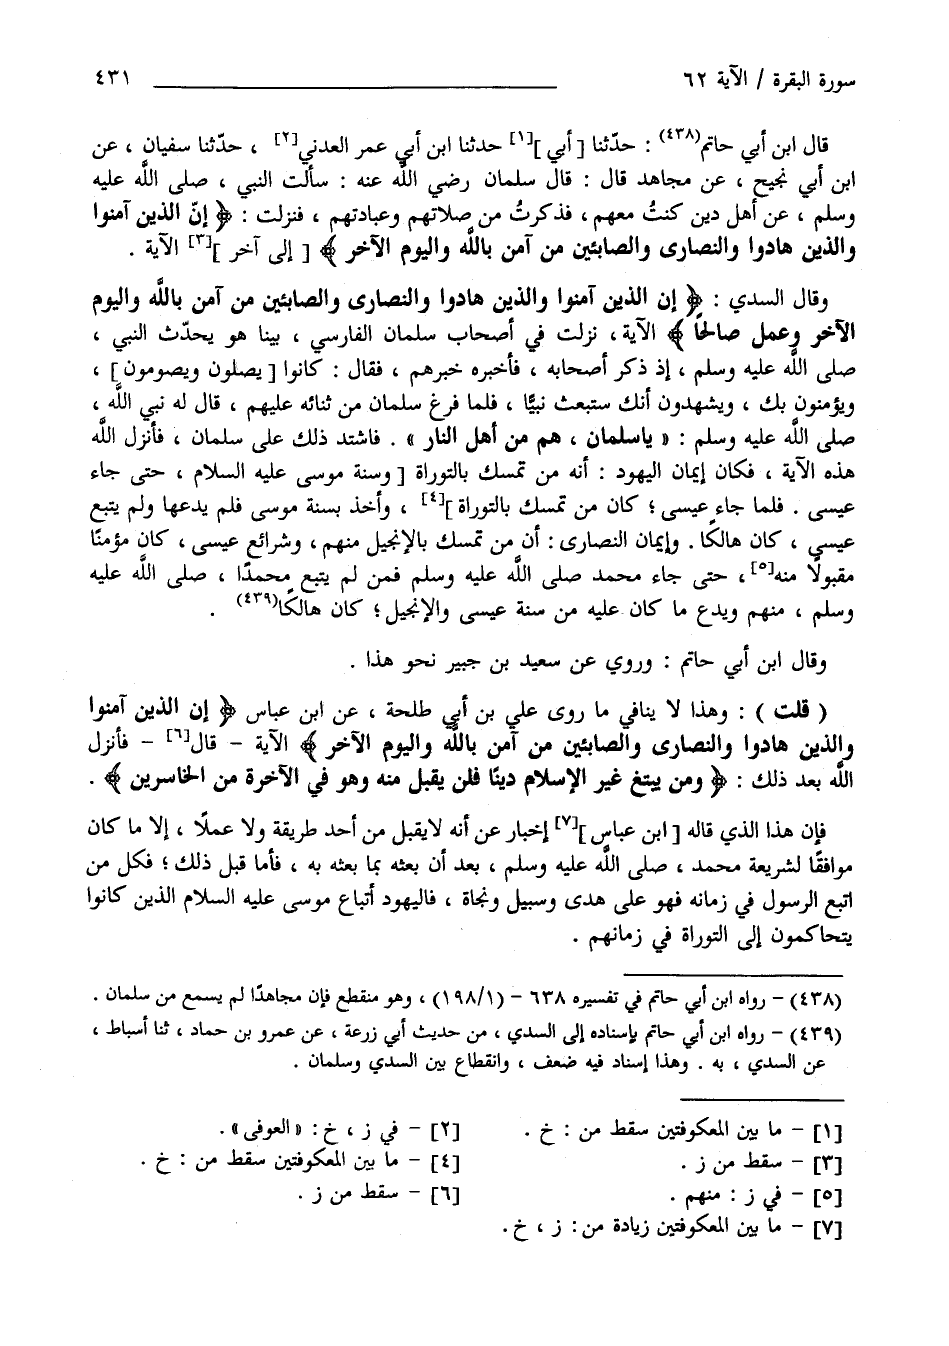 سورة البقرة / الآية ٦٢ ٤٣١
قال ابن أبي حاتم(٤٣٨) : حدّثنا [ أبي ][١] حدثنا ابن أبي عمر العدني[٢] ، حدّثنا سفيان ، عن
ابن أبي نجيح ، عن مجاهد قال : قال سلمان رضي اللَّه عنه : سألت النبي ، صلى اللَّه عليه
وسلم ، عن أهل دين كنتُ معهم ، فذكرتُ من صلاتهم وعبادتهم ، فنزلت : ﴿ إنّ الذين آمنوا
والذين هادوا والنصارى والصابئين من آمن باللَّه واليوم الآخر ﴾ [ إلى آخر ][٣] الآية .
وقال السدي : ﴿ إن الذين آمنوا والذين هادوا والنصارى والصابئين من آمن باللَّه واليوم
الآخر وعمل صالحًا ﴾ الآية، نزلت في أصحاب سلمان الفارسي ، بينا هو يحدّث النبي ،
صلى اللَّه عليه وسلم ، إذ ذكر أصحابه ، فأخبره خبرهم ، فقال : كانوا [ يصلون ويصومون ] ،
ويؤمنون بك ، ويشهدون أنك ستبعث نبيًّا ، فلما فرغ سلمان من ثنائه عليهم ، قال له نبي اللَّه ،
صلى اللَّه عليه وسلم : « ياسلمان ، هم من أهل النار » . فاشتد ذلك على سلمان ، فأنزل اللَّه
هذه الآية ، فكان إيمان اليهود : أنه من تمسك بالتوراة [ وسنة موسى عليه السلام ، حتى جاء
عيسى . فلما جاء عيسى ؛ كان من تمسك بالتوراة ][٤] ، وأخذ بسنة موسى فلم يدعها ولم يتبع
عيسى ، كان هالكًا . وإيمان النصارى : أن من تمسك بالإنجيل منهم ، وشرائع عيسى ، كان مؤمنًا
مقبولًا منه[٥]، حتى جاء محمد صلى اللَّه عليه وسلم فمن لم يتبع محمدًا ، صلى اللَّه عليه
وسلم ، منهم ويدع ما كان عليه من سنة عيسى والإنجيل ؛ كان هالكًا(٤٣٩) .
وقال ابن أبي حاتم : وروي عن سعيد بن جبير نحو هذا .
( قلت ) : وهذا لا ينافي ما روى علي بن أبي طلحة ، عن ابن عباس ﴿ إن الذين آمنوا
والذين هادوا والنصارى والصابئين من آمن باللَّه واليوم الآخر ﴾ الآية – قال[٦] – فأنزل
اللَّه بعد ذلك : ﴿ ومن يبتغ غير الإسلام دينًا فلن يقبل منه وهو في الآخرة من الخاسرين ﴾ .
فإن هذا الذي قاله [ ابن عباس ][٧] إخبار عن أنه لايقبل من أحد طريقة ولا عملًا ، إلا ما كان
موافقًا لشريعة محمد ، صلى اللَّه عليه وسلم ، بعد أن بعثه بما بعثه به ، فأما قبل ذلك ؛ فكل من
اتبع الرسول في زمانه فهو على هدى وسبيل ونجاة ، فاليهود أتباع موسى عليه السلام الذين كانوا
يتحاكمون إلى التوراة في زمانهم .
(٤٣٨) – رواه ابن أبي حاتم في تفسيره ٦٣٨ – (١٩٨/١) ، وهو منقطع فإن مجاهدًا لم يسمع من سلمان .
(٤٣٩) – رواه ابن أبي حاتم بإسناده إلى السدي ، من حديث أبي زرعة ، عن عمرو بن حماد ، ثنا أسباط ،
عن السدي ، به . وهذا إسناد فيه ضعف ، وانقطاع بين السدي وسلمان .
[١] – ما بين المعكوفتين سقط من : خ . [٢] – في ز ، خ : « العوفى » .
[٣] – سقط من ز . [٤] – ما بين المعكوفتين سقط من : خ .
[٥] – في ز : منهم . [٦] – سقط من ز .
[٧] – ما بين المعكوفتين زيادة من : ز ، خ .